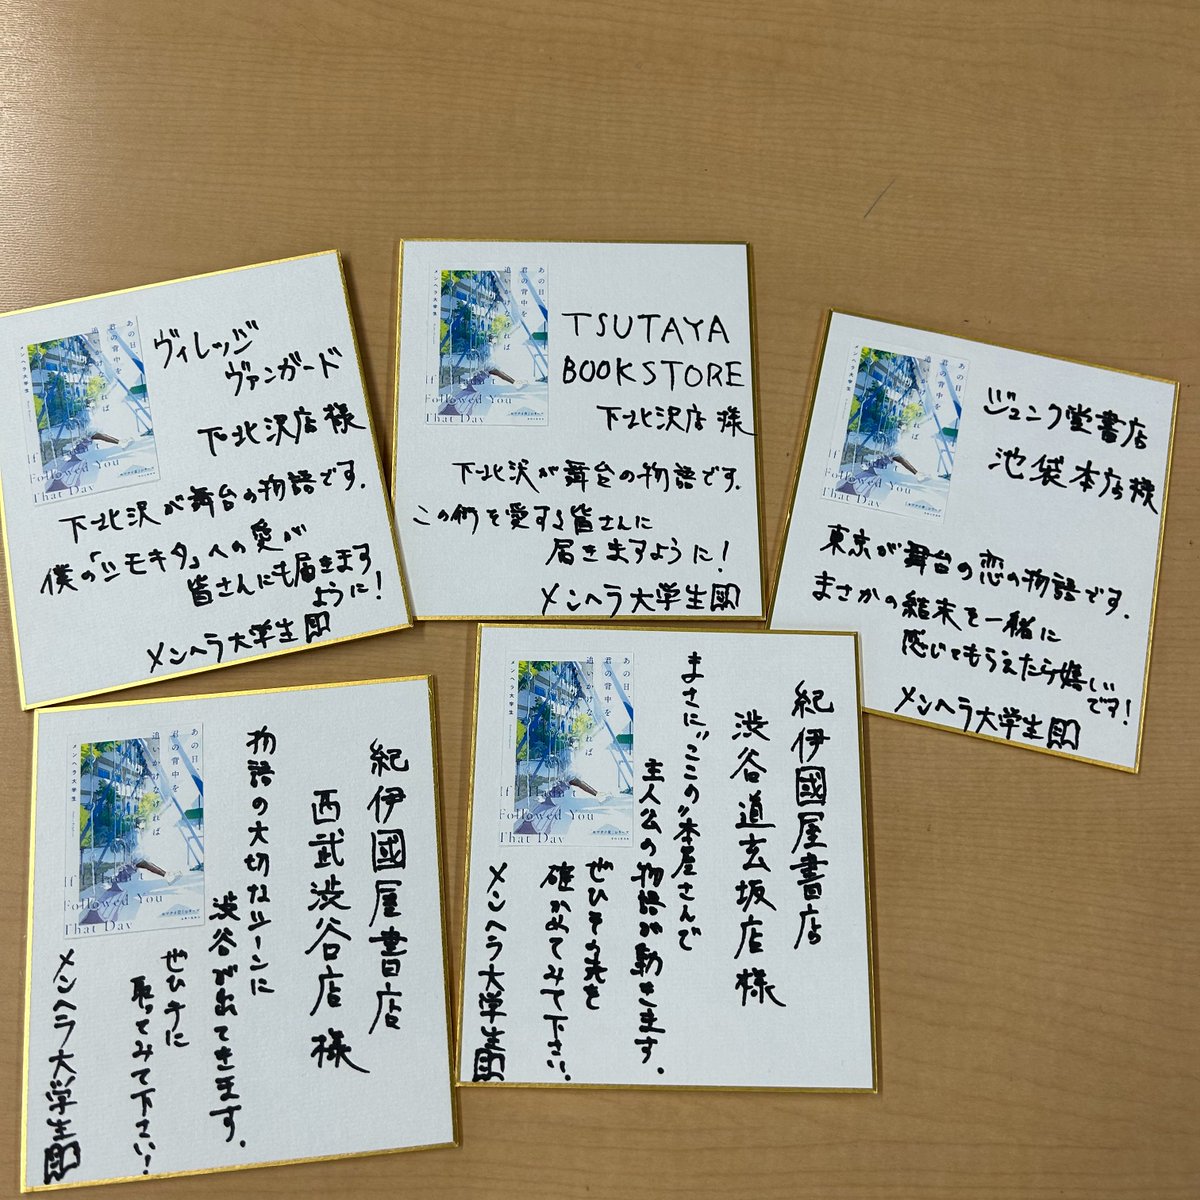 あの日
君の背中を
追いかけなければ
メンヘラ大学生
If I Hadn't
Followed You
That Day
ヴィレッジ
ヴァンガード
下北沢店様
下北沢が舞台の物語です。
僕の「シモキタ」への愛が
皆さんにも届きます
ように!
メンヘラ大学生
あの日
君の背中を
追いかけなければ
メンヘラ大学生
If I Hadn't
Followed You
That Day
TSUTAYA
BOOKSTORE
下北沢店様
下北沢が舞台の物語です。
この街を愛する皆さんに
届きますように!
メンヘラ大学生
あの日
君の背中を
追いかけなければ
メンヘラ大学生
If I Hadn't
Followed You
That Day
ジュンク堂書店
池袋本店様
東京が舞台の恋の物語です。
まさかの結末を一緒に
感じてもらえたら嬉しい
です!
メンヘラ大学生
あの日
君の背中を
追いかけなければ
メンヘラ大学生
If I Hadn't
Followed You
That Day
紀伊國屋書店
西武渋谷店様
物語の大切なシーンに
渋谷が出てきます。
ぜひ手に
取ってみて下さい!
メンヘラ大学生
あの日
君の背中を
追いかけなければ
メンヘラ大学生
If I Hadn't
Followed You
That Day
紀伊國屋書店
渋谷道玄坂店様
まさに"ここの"本屋さんで
主人公の物語が動きます。
ぜひその先を
確かめてみて下さい。
メンヘラ大学生